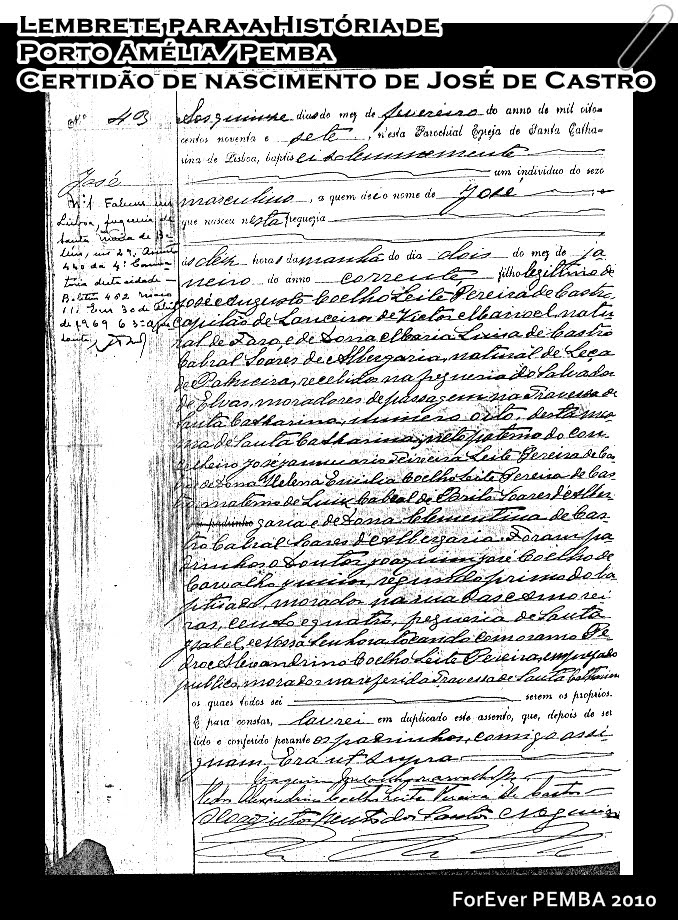 LEMBRETE PARA A HISTÓRIA DE
PORTO AMÉLIA/PEMBA
CERTIDÃO DE NASCIMENTO DE JOSÉ DE CASTRO
N.º 43
José
N.º 1. Faleceu em
Lisboa, freguesia de
Santa Maria de Be
lém,
de 1969
Aos quinze dias do mez de fevereiro do anno de mil oito-
centos noventa e sete, n'esta Parochial Egreja de Santa Catha-
rina de Lisboa, baptisei solemnemente
um individuo do sexo
masculino, a quem dei o nome de José,
que nasceu nesta freguezia
ás dez horas da manhã do dia dois do mez de ja
neiro do anno corrente, filho legitimo de
José Augusto Coelho Leite Pereira de Castro,
capitão de Lanceiros de Victor Manoel, natu
ral de Faro, e de Dona Maria Luisa de Castro
Cabral Soares de Albergaria, natural de Leça
de Palmeira, recebidos na freguesia do Salvador
de Elvas, moradores de passagem na Travessa de
Santa Catharina, numero oito, desta
de Santa Catharina, neto paterno do con
selheiro José Januario Teixeira Leite Pereira de Cas
tro e de Dona Helena Emilia Coelho Leite Pereira de Cas
tro, materno de Luis Cabral de Soares d'Alber
garia e de Dona Clementina de Cas
tro Cabral Soares d'Albergaria. Foram pa
drinhos o Doutor Joaquim José Coelho de
Carvalho Junior, segundo primo do ba
ptisado, morador na rua das Amorei
ras, cento e quatro, freguesia de Santa
Isabel, e Nossa Senhora, tocando com o ramo Pe
dro Alexandrino Coelho Leite Pereira, empregado
publico, morador na referida Travessa de Santa Catharina
os quaes todos sei serem os proprios.
E para constar, lavrei em duplicado este assento, que, depois de ser
lido e conferido perante os padrinhos, comigo assi
gnam. Era ut supra.
Pedro Alexandrino Coelho Leite Pereira de Castro
dos Santos
ForEver PEMBA 2010